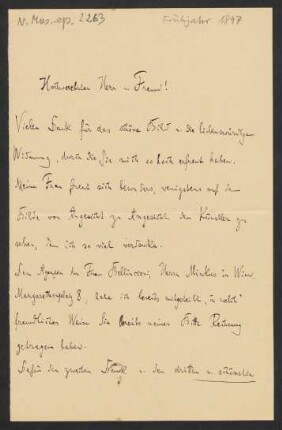 N. Mus. ep. 2263
Frühjahr 1897
Hochverehrter Herr u. Freund!
Vielen Dank für das schöne Bild u. die liebenswürdige
Widmung, durch die Sie mich so hoch erfreut haben.
Meine Frau freut sich besonders, wenigstens auf dem
Bilde von Angesicht zu Angesicht den Künstler zu
sehen, dem ich so viel verdanke.
Den Agenten der Frau Bellincioni, Herrn Minkus in Wien,
8, habe ich bereits mitgeteilt, in welch'
freundlicher Weise Sie bereits meiner Bitte Rechnung
getragen haben.
Dafür den zweiten Dank u. den dritten u. schönsten